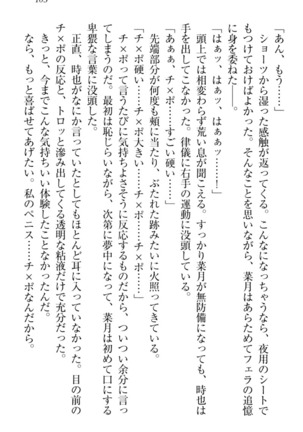 「あん、もう……」
ショーツから湿った感触が返ってくる。こんなになっちゃうなら、夜用のシートで
もつけておけばよかった。そんなことを思いながら、菜月はあらためてフェラの追憶
に身を委ねた――。
「はぁッ……はぁ、はぁぁッ……！」
頭上では相変わらず荒い息が聞こえる。すっかり菜月が無防備になっても、時也は
手を出してこなかった。律儀に右手の運動に没頭している。
「あぁぁ、チ×ポ……すごい硬い……」
先端部分が何度も頬に当たり、ぶたれた跡みたいに火照ってきている。
「チ×ポ硬い……チ×ポ大きい……チ×ポ……チ×ポ……」
チ×ポって言うたびに気持ちよさそうに反応するものだから、ついつい余分に言っ
てしまうのだ。最初は恥じらいながら、次第に夢中になって、菜月は初めて口にする
卑猥な言葉に没頭した。
正直、時也がなにか言っていたとしてもほとんど耳に入っていなかった。目の前の
チ×ポの反応と、トロッと滲み出してくる透明な粘液だけで充分だった。
きっと、今までこんな気持ちいい体験したことなかったんだ。
なら、もっと喜ばせてあげたい。私のペニス……チ×ポなんだから。